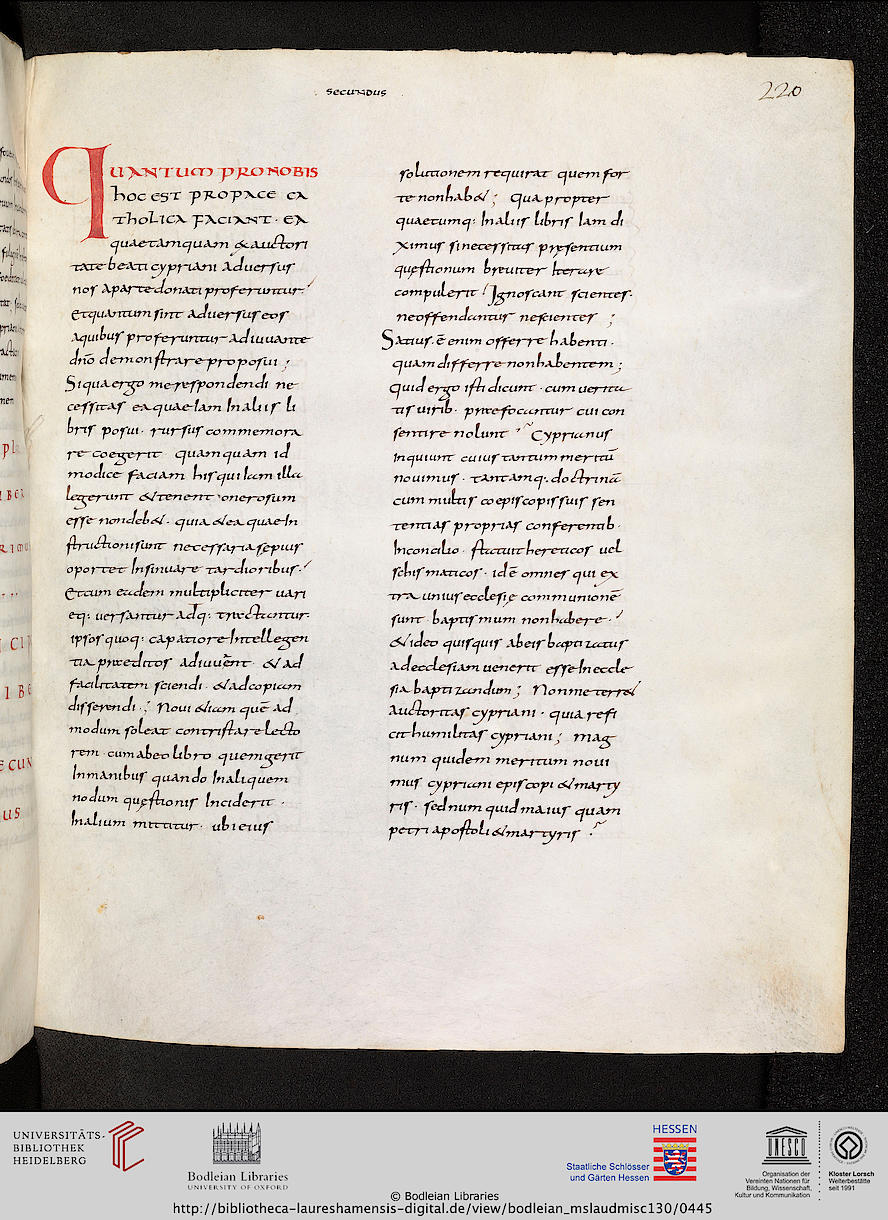 SECUNDUS
220
QUANTUM PRO NOBIS
hoc EST PROPACE CA
TholicA FACIANT · EA
quaetamquam & auctori
tate beati cypriani adversus
nos aparte donati proferuntur
Etquantum sint adversus eos
aquibus proferuntur adiuuante
dño demonstrare proposui ;
Siqua ergo merespondendi ne
cessitas eaquae Iam Inaliis li
bris posui · rursus commemora
re coegerit quamquam id
modice faciam his qui Iam illa
legerunt & tenent onerosum
esse nondeb& · quia & ea quae In
structioni sunt necessaria sępius
oportet Insinuare tardioribus ·
Etcum eadem multipliciter uari
eq: uersantur adq: tractantur ·
ipsos quoq: capatiore Intellegen
tia praeditos adiuuent & ad
facilitatem sciendi · & adcopiam
disserendi ; Noui &iam quē ad
modum soleat contristare lecto
rem · cum abeo libro quem gerit
Inmanibus quando Inaliquem
nodum quęstionis Inciderit ·
Inalium mittitur · ubi eius
solutionem requirat quem for
te non hab& ; Qua propter
quaecumq: Inaliis libris Iam di
ximus sinecessitas pręsentium
quęstionum breuiter Iterare
compulerit Ignoscant scientes ·
neoffendantur nescientes ;
Satius · ē enim offerre habenti ·
quam differre nonhabentem ;
Quid ergo isti dicunt · cum uerita
tis uirib · praefocantur cui con
sentire nolunt Cyprianus
Inquiunt cuius tantum meritū
nouimus · tantamq: doctrinā
cum multis coepiscopis suis sen
tentias proprias conferentib ·
Inconcilio · statuit hereticos uel
schismaticos · idē omnes qui ex
tra unius ecclesię communionē
sunt · baptismum nonhabere ·
& ideo quisquis abeis baptizatus
adecclesiam uenerit esse In eccle
sia baptizandum ; Nonme terr&
auctoritas cypriani · quia refi
cit humilitas cypriani ; mag
num quidem meritum noui
mus cypriani episcopi & marty
ris · sed num quid maius quam
petri apostoli & martyris
UNIVERSITÄTS-
BIBLIOTHEK
HEIDELBERG
Bodleian Libraries
UNIVERSITY OF OXFORD
HESSEN
Staatliche Schlösser
und Gärten Hessen
UNESCO
Organisation der
Vereinten Nationen für
Bildung, Wissenschaft,
Kultur und Kommunikation
Kloster Lorsch
Welterbestätte
seit 1991
© Bodleian Libraries
http://bibliotheca-laureshamensis-digital.de/view/bodleian_mslaudmisc130/0445